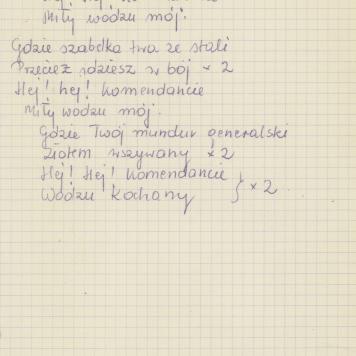 Miły wodzu mój!
Gdzie szabelka twa ze stali
Przecież idziesz w bój × 2
Hej! hej! Komendancie
Miły wodzu mój.
Gdzie Twój mundur generalski
Złotem wszywany × 2
Hej! Hej! Komendancie
Wodzu Kochany } × 2